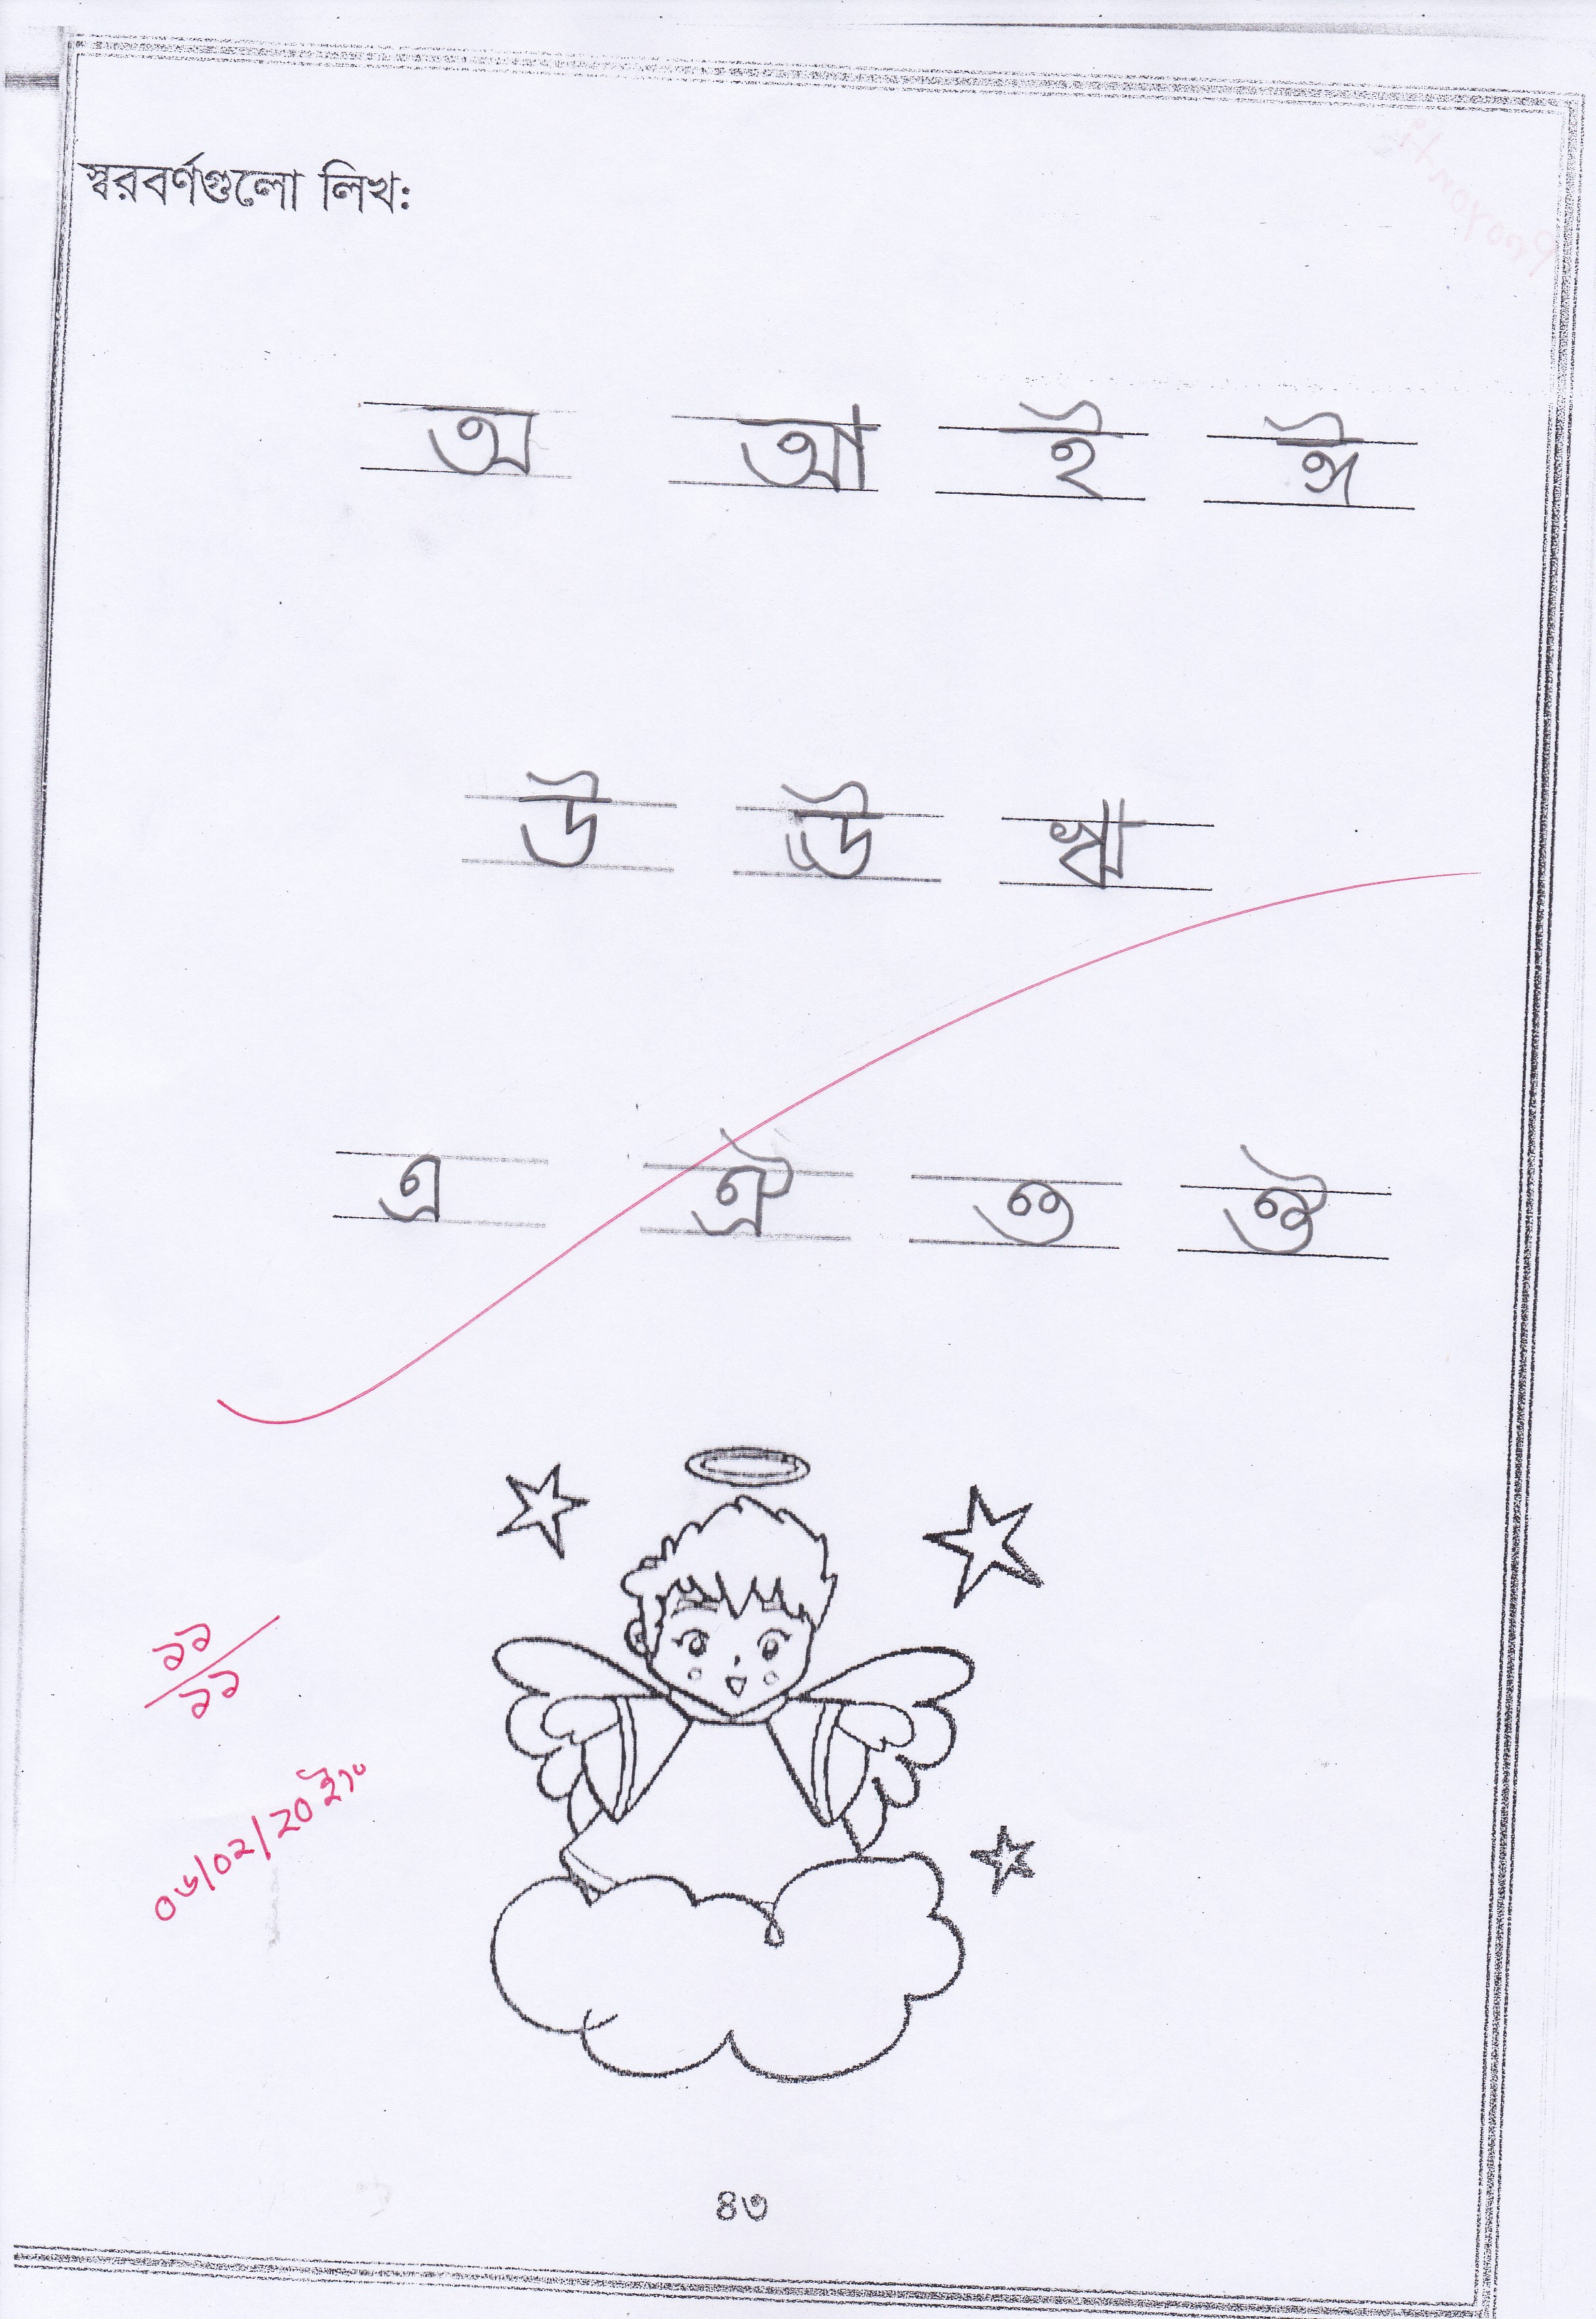 স্বরবর্ণগুলো লিখ:
অ আ ই ঈ
উ ঊ ঋ
এ ঐ ও ঔ
১১
১১
০৬/০২/২০ ইং
৪৩